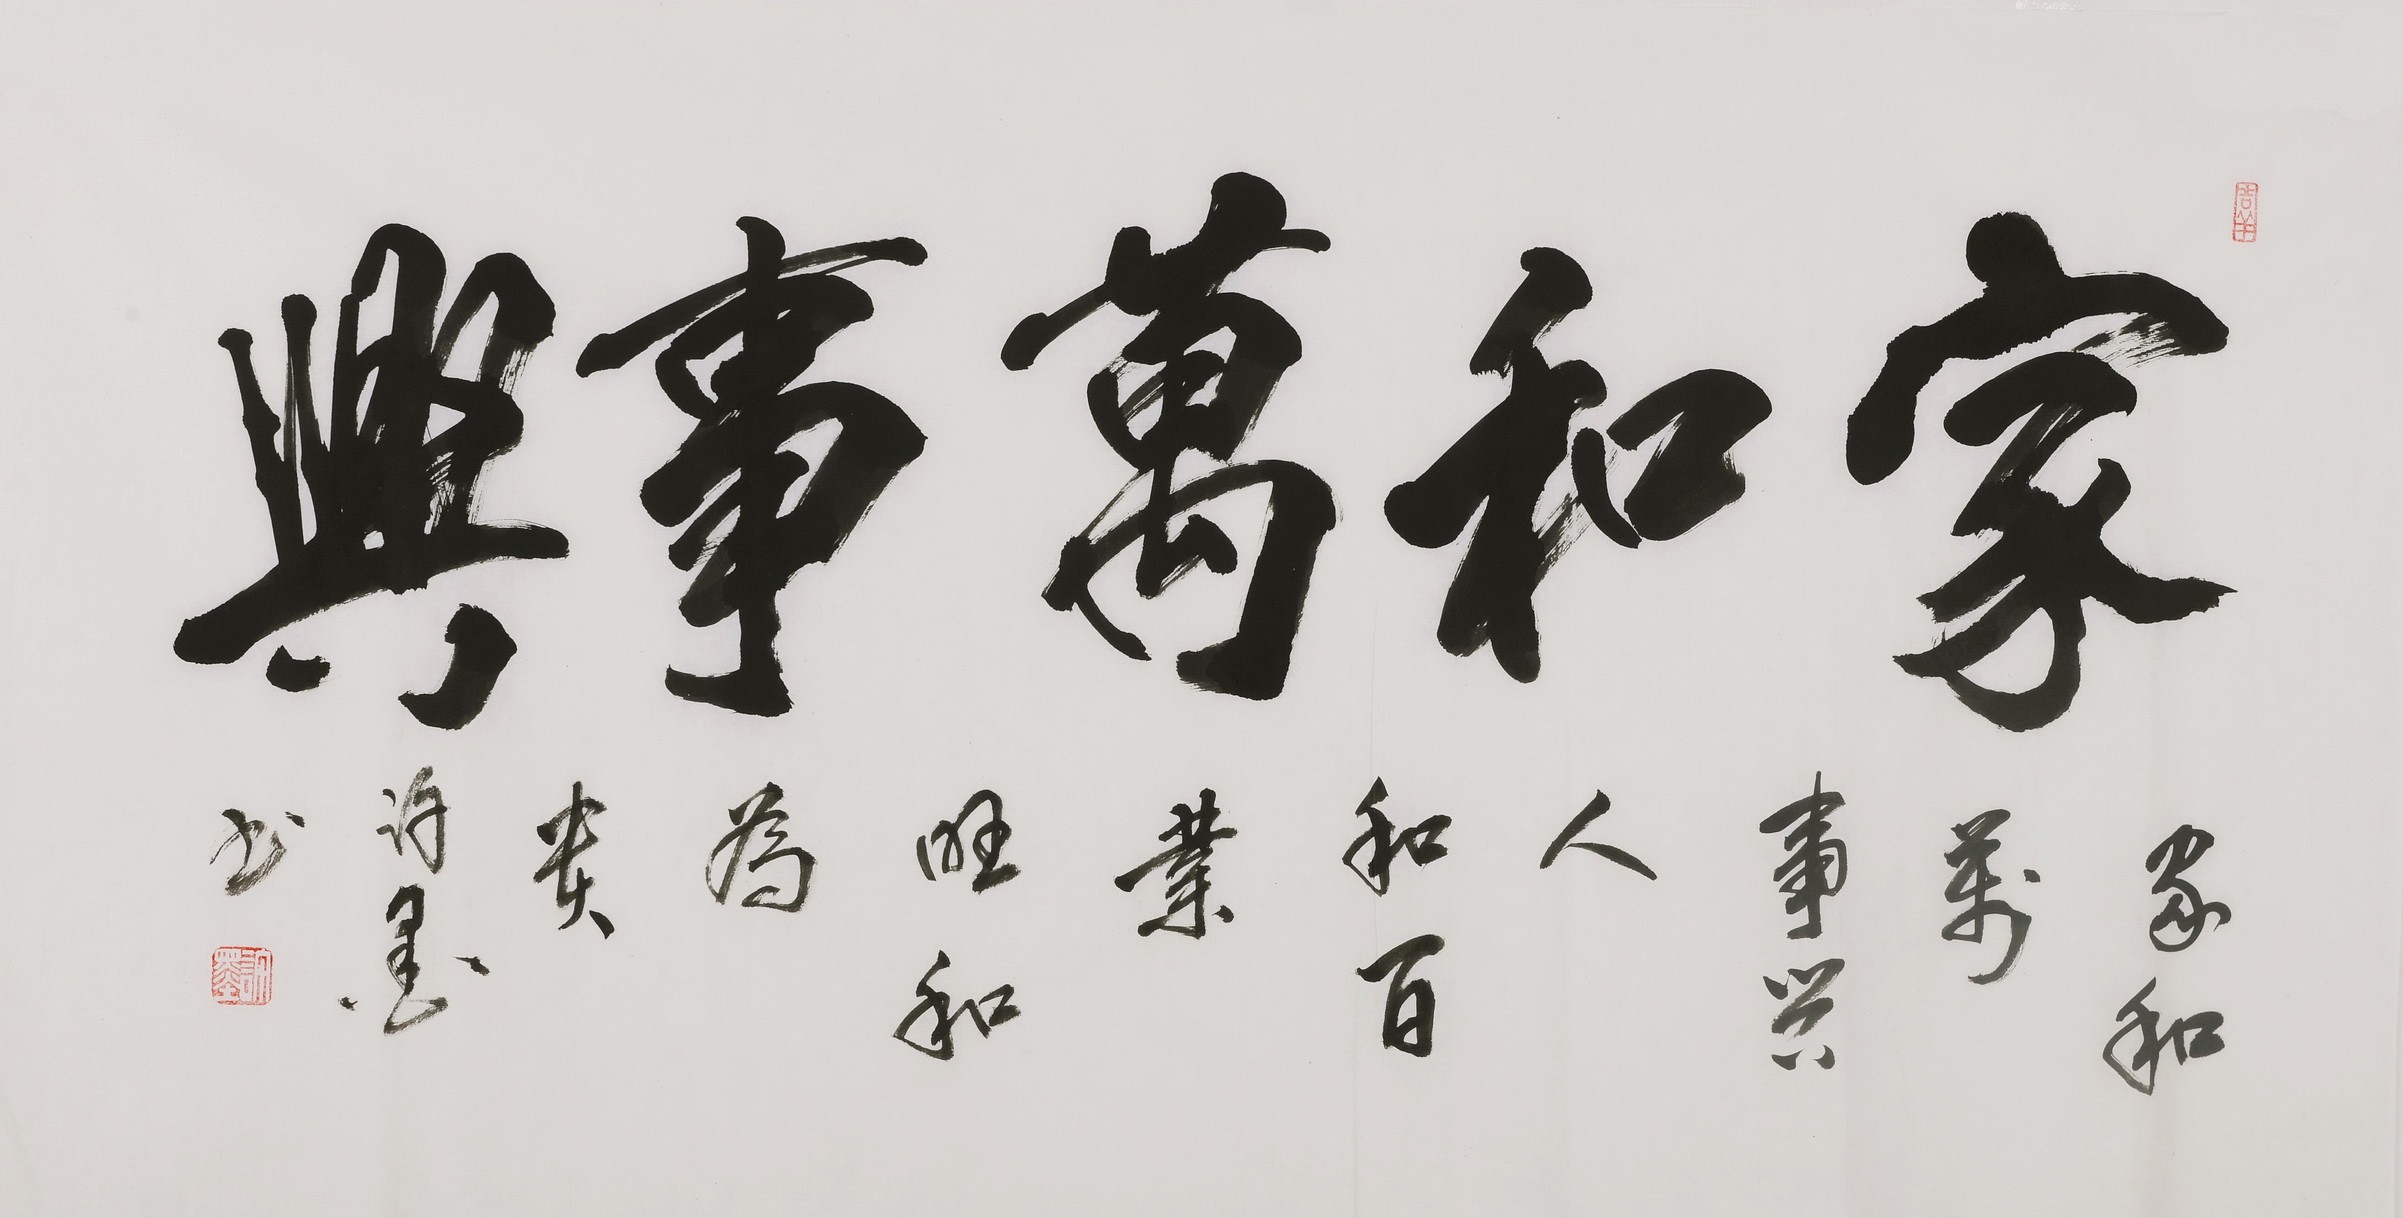 家和萬事興
家和
萬
事興
人
和百
業
旺和
為
貴
許墨
書
吉羊
許墨